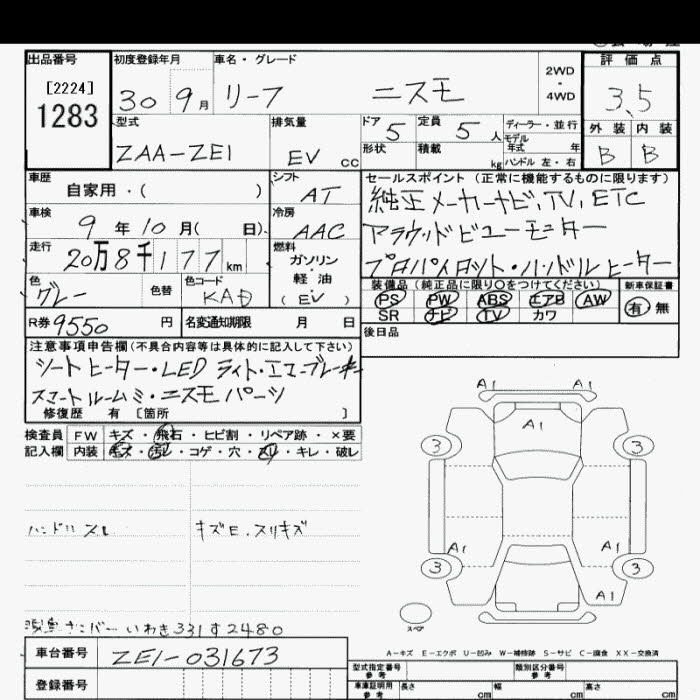 出品番号 初度登録年月 車名・グレード 2WD・4WD 評価点
[2224] 1283 30 9月 リーフ ニスモ 3,5
型式 排気量 ドア 5 定員 5人 ディーラー・並行 外装 内装
モデル年式 年
ZAA-ZE1 EV cc 形状 積載 kg ハンドル 左・右 B B
車歴 シフト セールスポイント(正常に機能するものに限ります)
自家用・( ) AT 純正メーカーナビ、TV、ETC
車検 冷房 アラウンドビューモニター
9年10月( 日) AAC プロパイロット・ハンドルヒーター
走行 燃料
20万8千177km ガソリン・軽油(EV)
装備品(純正品に限り○をつけてください) 新車保証書
色 グレー 色替 色コード KAD PS PW ABS エアB AW 有・無
SR ナビ TV カワ
R券 9550円 名変通知期限 月 日 後日品
注意事項申告欄(不具合内容等は具体的に記入して下さい)
シートヒーター・LEDライト・エマーブレーキ
スマートルームミ・ニスモパーツ
修復歴 有 [箇所 ]
検査員 FW キズ・飛石・ヒビ割・リペア跡・×要
記入欄 内装 キズ・汚レ・コゲ・穴・スレ・キレ・破レ
ハンドルスレ キズE、スリキズ
いわき331す2480
車台番号 ZE1-031673
登録番号
A1 A1
A1
3 3
A1 A1
3 3
A1
スペア
A-キズ E-エクボ U-凹み W-補修跡 S-サビ C-腐食 XX-交換済
型式指定番号 参考 類別区分番号 参考
車庫証明用 参考 長さ cm 幅 cm 高さ cm